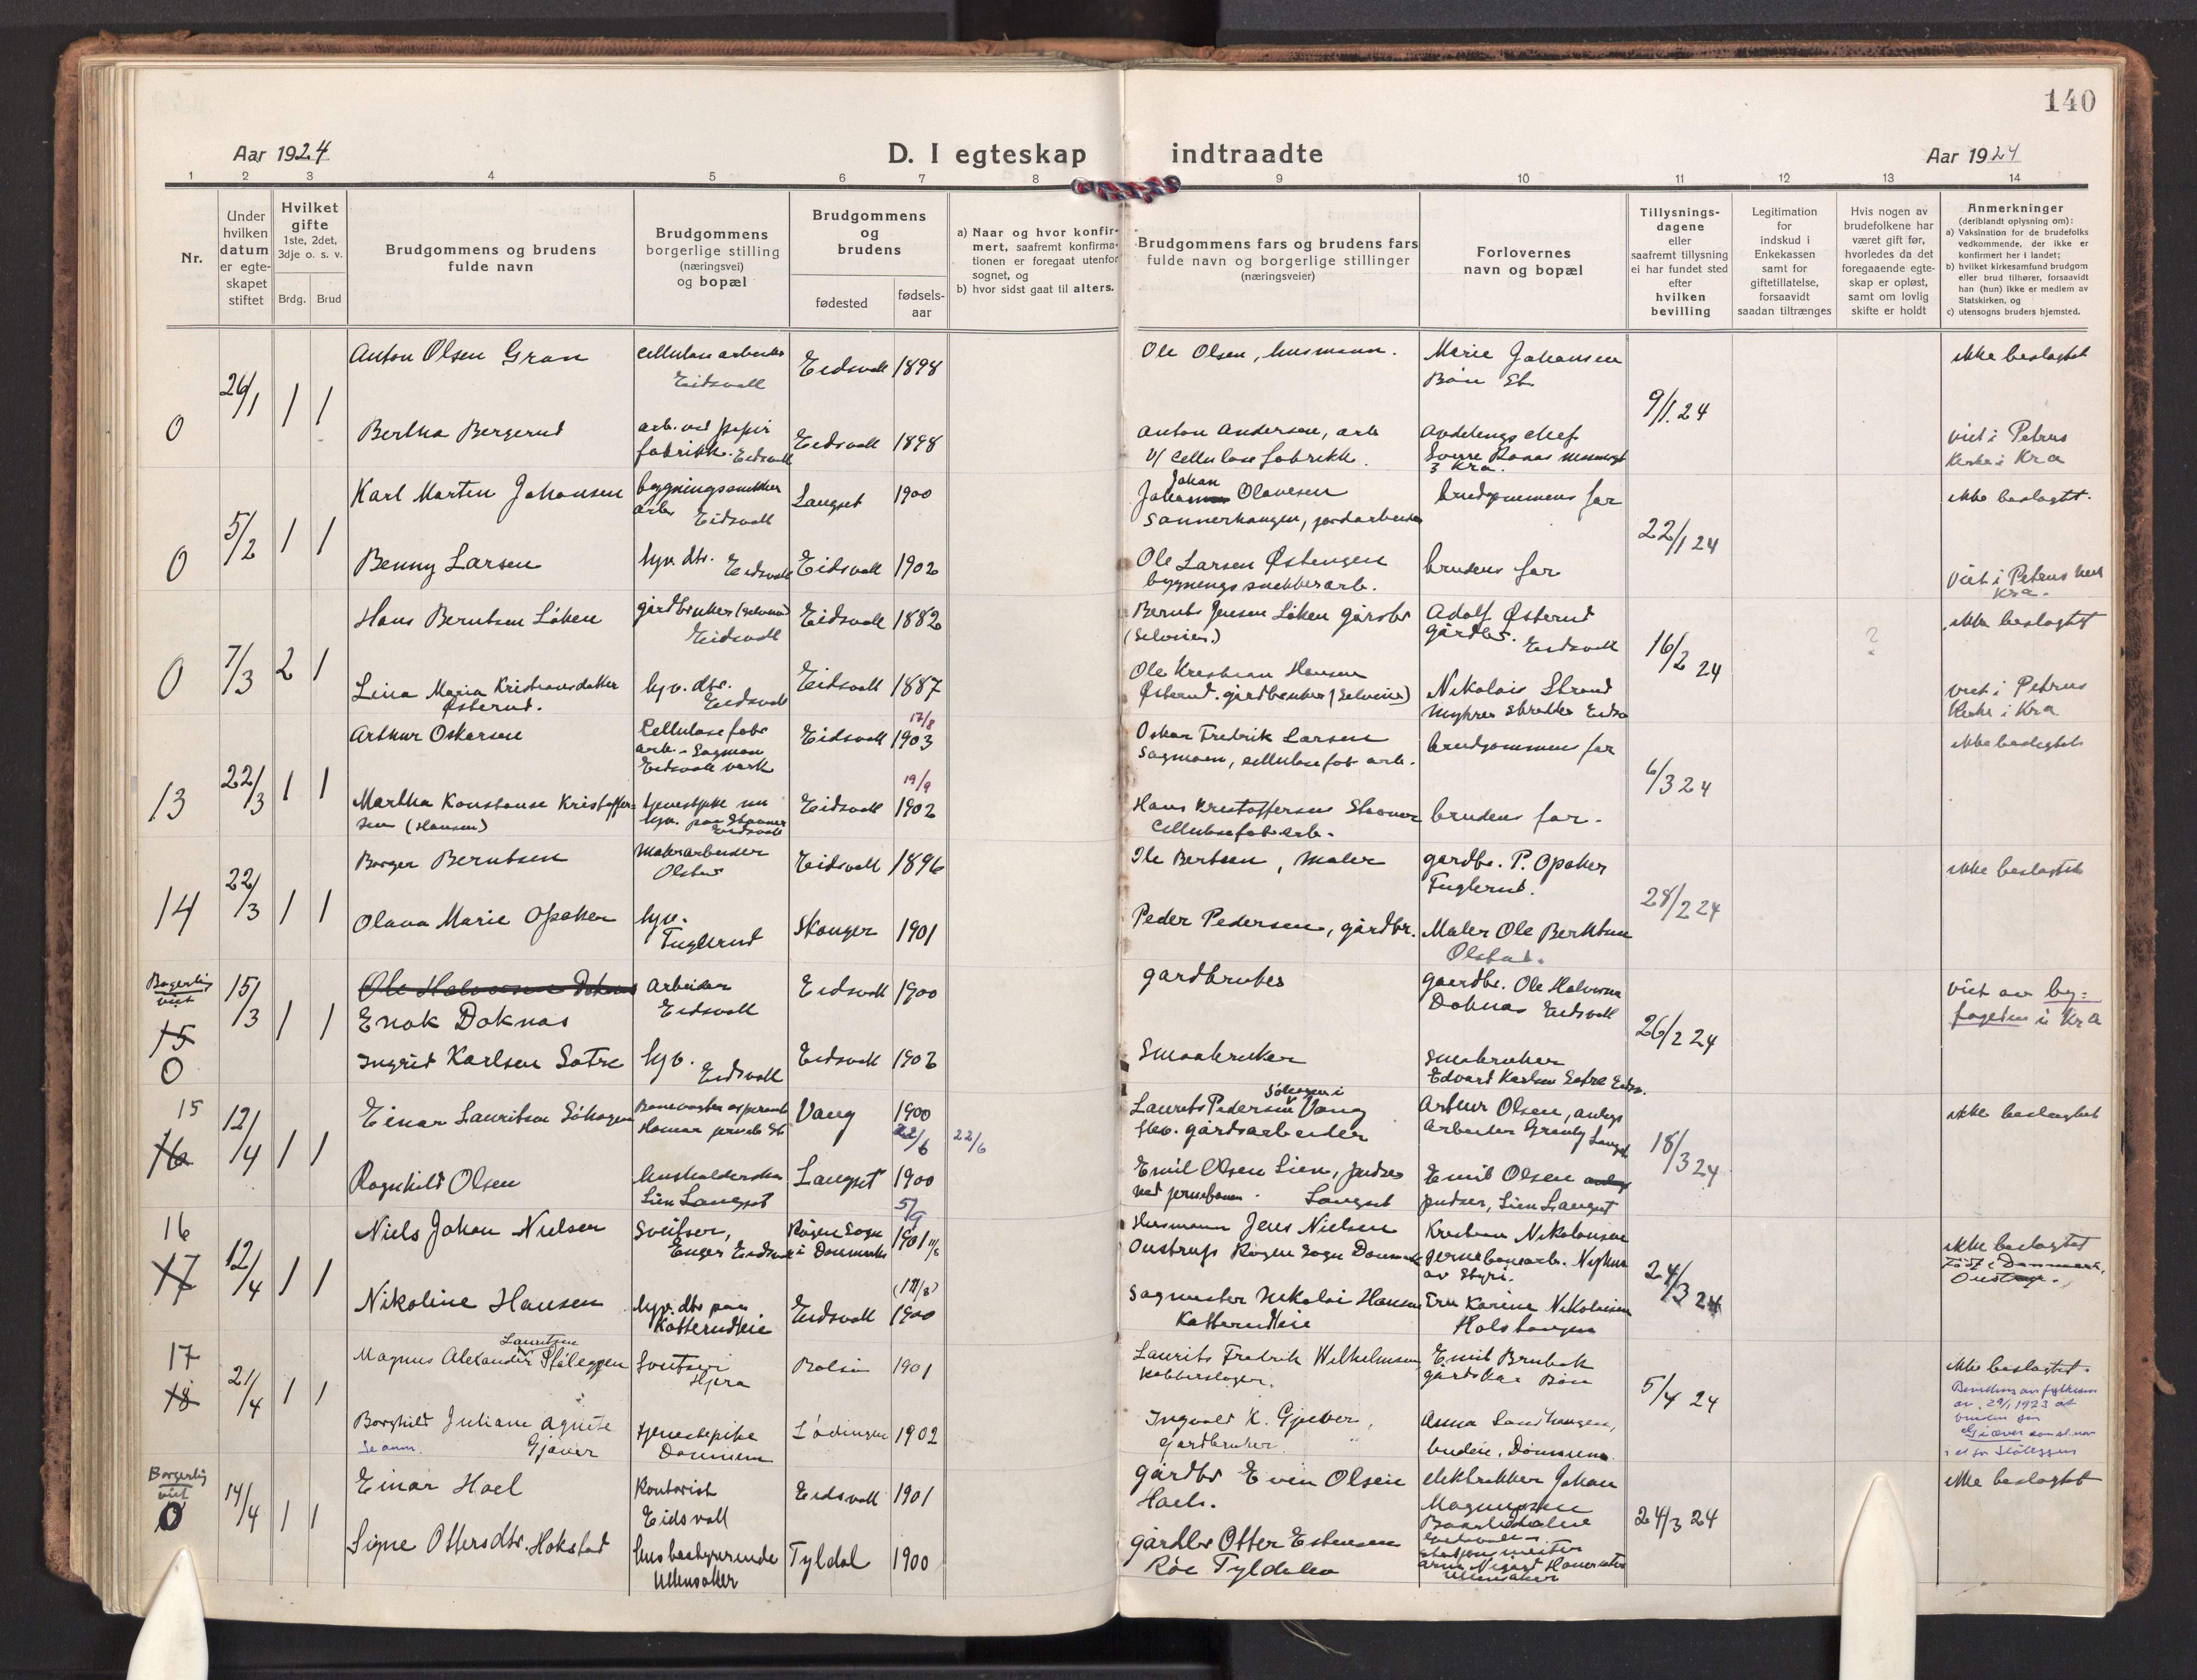 140
Aar 1924
D. I egteskap indtraadte
Aar 1924
1 2 3 4 5 6 7 8 9 10 11 12 13 14
Nr.
Under
hvilken
datum
er egte-
skapet
stiftet
Hvilket
gifte
1ste, 2det,
3dje o. s. v.
Brdg. Brud
Brudgommens og brudens
fulde navn
Brudgommens
borgerlige stilling
(næringsvei)
og bopæl
Brudgommens
og
brudens
fødested
fødsels-
aar
a) Naar og hvor konfir-
mert, saafremt konfirma-
tionen er foregaat utenfor
sognet, og
b) hvor sidst gaat til alters.
Brudgommens fars og brudens fars
fulde navn og borgerlige stillinger
(næringsveier)
Forlovernes
navn og bopæl
Tillysnings-
dagene
eller
saafremt tillysning
ei har fundet sted
efter
hvilken
bevilling
Legitimation
for
indskud i
Enkekassen
samt for
giftetillatelse,
forsaavidt
saadan tiltrænges
Hvis nogen av
brudefolkene har
været gift før,
hvorledes da det
foregaaende egte-
skap er opløst,
samt om lovlig
skifte er holdt
Anmerkninger
(deriblandt oplysning om):
a) Vaksination for de brudefolks
vedkommende, der ikke er
konfirmert her i landet;
b) hvilket kirkesamfund brudgom
eller brud tilhører, forsaavidt
han (hun) ikke er medlem av
Statskirken, og
c) utensogns bruders hjemsted.
0 26/1 1 1
Anton Olsen Gran
Cellulose arbeider
Eidsvoll
Eidsvoll 1898
Ole Olsen, husmann.
Marie Johansen
Bøn St.
9/1.24
ikke beslagtet
Bertha Bergerud
arb. ved papir
fabrikk. Eidsvoll
Eidsvoll 1898
Anton Andersen, arb
v/ Cellulosefabrikk.
Avdelings chef
viet i Petrus
Kirke i Kra
0 5/2 1 1
Karl Martin Johansen
bygningssnekker
arb. Eidsvoll
Langset 1900
Johan
Olavesen
Sannerhaugen, jordarbeider
brudgommens far
22/1 24
ikke beslagtet.
Benny Larsen
hjv. dtr. Eidsvoll
Eidsvoll 1902
Ole Larsen Østengen
bygnings snekkerarb.
brudens far
viet i Petrus kirk
Kra.
0 7/3 2 1
Hans Berntsen Løken
gårdbruker (selveier)
Eidsvoll
Eidsvoll 1882
Bernt Jensen Løken gårdbr
(selveier)
Adolf Østerud
gårdbr. Eidsvoll
16/2 24
?
ikke beslagtet
Lina Maria Kristiansdatter
Østerud.
hjv. dtr.
Eidsvoll
Eidsvoll 1887
Ole Kristian Hansen
Østerud. gårdbruker (selveier)
Nikolais Strand
viet i Petrus
Kirke i Kra
13 22/3 1 1
Arthur Oskarsen
Cellulosefabr
arb. - Sagmoen
Eidsvoll verk
Eidsvoll 17/8 1903
Oskar Fredrik Larsen
Sagmoen, cellulosefab arb.
brudgommens far
6/3 24
ikke beslegtet
Martha Konstanse Kristoffer-
sen (Hansen)
tjenestepike nu
hjv. paa Stoomer
Eidsvoll
Eidsvoll 19/9 1902
Hans Kristoffersen
Cellulosefab. arb.
brudens far.
14 22/3 1 1
Borger Berntsen
Malerarbeider
Olstad
Eidsvoll 1896
Ole Bertsen, maler
gardbr. P. Opaker
Fuglerud.
28/2 24
ikke beslagtet
Olava Marie Opaker
hjv.
Fuglerud
Skauger 1901
Peder Pedersen, gårdbr.
Maler Ole Berntsen
Olstad.
Bogerlig
viet
15 0 15/3 1 1
Ole Halvorsen Doknas
Enok Doknas
Arbeider
Eidsvoll
Eidsvoll 1900
gardbruker
gaardbr. Ole Halvorsen
Doknas Eidsvoll
26/2 24
viet av by=
fogden i Kra
Ingrid Karlsen Sætre
hjv.
Eidsvoll
Eidsvoll 1902
Smaabruker
Smabruker
Edvard Karlsen Sætre Eidsv.
15 16 12/4 1 1
Einar Lauritsen Söhagen
Banevogter aspirant
Hamar jernb. St
Vang 1900
22/6 22/6
Söhagen i
Laurits Pedersen Vang
gårdsarbeider
Arthur Olsen, anlegs
arbeider
18/3 24
ikke beslagtet
Ragnhild Olsen
husholderske
Lien Langset
Langset 1900
5/9
Emil Olsen Lien, pudser
ved jernbanen. Langset
Emil Olsen
pudser, Lien Langset
16 17 12/4 1 1
Niels Johan Nielsen
Sveitser,
Enger Eidsvoll
Røgen Sogn
i Danmark
1901 11/8
Husmann Jens Nielsen
Oustrup Røgen Sogn Danmark
Kristian Nikolaisen
jernbanearb. Nyhus
av Styri.
24/3 24
ikke beslagtet
Født i Danmark,
Oustrup.
Nikoline Hansen
hjv. dtr paa
Katterudteie
Eidsvoll (17/8) 1900
Sagmester Nikolai Hansen
Katterudteie
Fru Karine Nikolaisen
Holshaugen
17 18 21/4 1 1
Lauritsen
Magnus Alexander Støleggen
Sveitser i
Hjera
Balsin 1901
Laurits Fredrik Wilhelmsen
Kobberslager.
Emil Brubak
gårdskar Bøn
5/4 24
ikke beslagtet.
Borghild Juliane Agnete
Gjæver
Se anm.
tjenestepike
Dønnum
Lødingen 1902
Ingvald K. Gjæver,
Gårdbruker
Anna Sandhaugen,
budeie, Dønnum
Bevilling av fylkesm
av 29/1 1923 at
bruden før
Giæver som sl. navn
Borgerlig
viet
0 14/4 1 1
Einar Hoel
Kontorist
Eidsvoll
Eidsvoll 1901
gårdbr Even Olsen
Hoel.
elektrikker Johan
Magnussen
24/3 24
ikke beslagtet
Signe Ottersdtr. Hokstad
husbestyrerinde
Ullensaker
Tyldal 1900
gårdbr Otter Estensen
Röe Tyldalen
stasjonsmester
Ullensaker